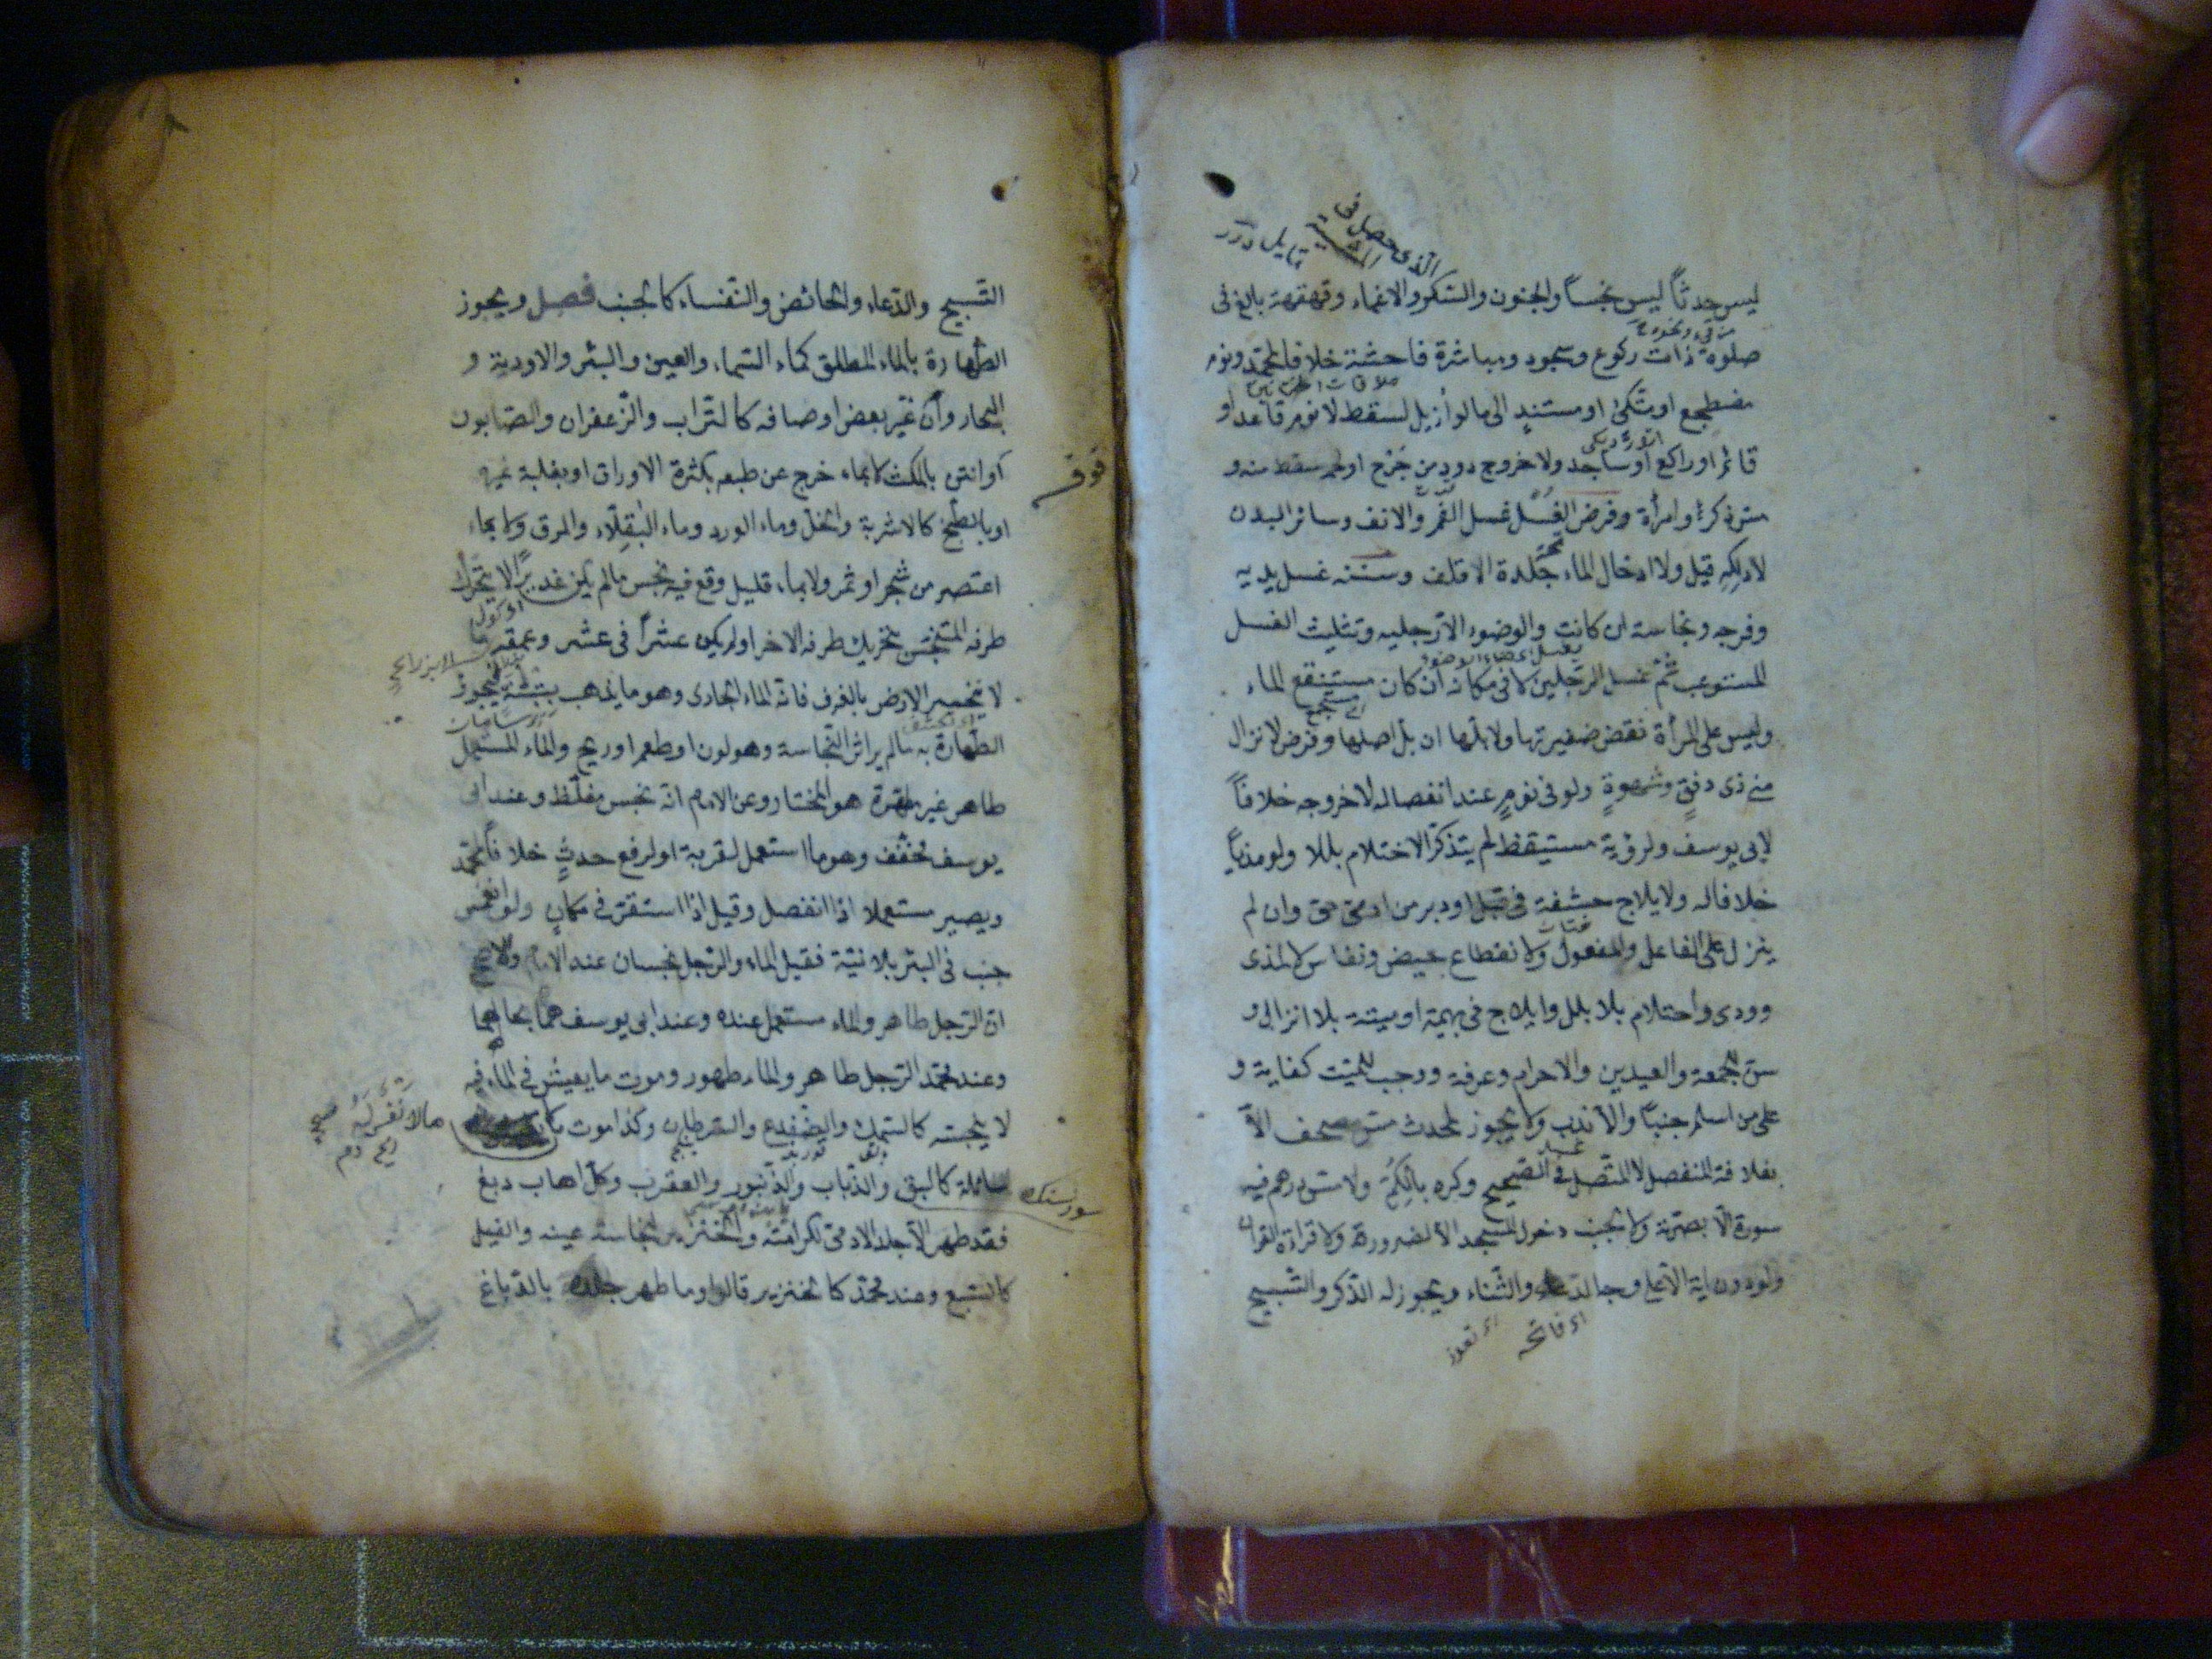 ليس حدثاً ليس نجساً والجنون والسكر والاغماء وقهقهة بالغ فى
صلوة ذات ركوع وسجود ومباشرة فاحشة خلافا لمحمد ونوم
مضطجع او متكئ او مستند الى ما لو أزيل لسقط لا نوم قاعد او
قائم او راكع او ساجد ولا خروج دود من جرح او لحم سقط منه و
مس ذكر او امرأة وفرض الغسل غسل الفم والانف وسائر البدن
لا دلكه قيل ولا ادخال الماء جلدة الاقلف وسننه غسل يديه
وفرجه ونجاسة ان كانت والوضوء الا رجليه وتثليث الغسل
المستوعب ثم غسل الرجلين لا فى مكانه ان كان مستنقع الماء
وليس على المرأة نقض ضفيرتها ولا بلها ان بل اصلها وفرض لانزال
منى ذى دفق وشهوة ولو فى نوم عند انفصاله لا خروجه خلافاً
لابى يوسف ولرؤية مستيقظ لم يتذكر الاحتلام بللا ولو مذياً
خلافا له ولايلاج حشفة فى قبل او دبر من ادمى حى وان لم
ينزل على الفاعل والمفعول ولانقطاع حيض ونفاس لا لمذى
وودى واحتلام بلا بلل وايلاج فى بهيمة او ميتة بلا انزال و
سن للجمعة والعيدين والاحرام وعرفة ووجب للميت كفاية و
على من اسلم جنباً والا ندب ولا يجوز لمحدث مس مصحف الا
بغلافه المنفصل لا المتصل فى الصحيح وكره بالكم ولا مس درهم فيه
سورة الا بصرته ولا لجنب دخول المسجد الا لضرورة ولا قراءة القران
ولو دون اية الا على وجه الدعاء والثناء ويجوز له الذكر والتسبيح
اى فاتحه
التسبيح والدعاء والحائض والنفساء كالجنب فصل ويجوز
الطهارة بالماء المطلق كماء السماء والعين والبئر والاودية و
البحار وان غير بعض اوصافه كالتراب والزعفران والصابون
او انتن بالمكث لا بماء خرج عن طبعه بكثرة الاوراق او بغلبة غيره
او بالطبخ كالاشربة والخل وماء الورد وماء الباقلاء والمرق ولا بماء
اعتصر من شجر او ثمر ولا بماء قليل وقع فيه نجس ما لم يكن غديرا لا يتحرك
طرفه المتنجس بتحريك طرفه الاخر اولم يكن عشراً فى عشر وعمقه ما
لا تنحسر الارض بالغرف فانه كالماء الجارى وهو ما يذهب بتبنة فيجوز
الطهارة به ما لم ير اثر النجاسة وهو لون او طعم او ريح والماء المستعمل
طاهر غير مطهر هو المختار وعن الامام انه نجس مغلظ وعند ابى
يوسف مخفف وهو ما استعمل لقربة او لرفع حدث خلافاً لمحمد
ويصير مستعملا اذا انفصل وقيل اذا استقر فى مكان ولو انغمس
جنب فى البئر بلا نية فقيل الماء والرجل نجسان عند الامام والاصح
ان الرجل طاهر والماء مستعمل عنده وعند ابى يوسف هما بحالهما
وعند محمد الرجل طاهر والماء طهور وموت ما يعيش فى الماء فيه
لا ينجسه كالسمك والضفدع والسرطان وكذا موت ما
سائلة كالبق والذباب والزنبور والعقرب وكل اهاب دبغ
فقد طهر الا جلد الادمى لكرامته والخنزير لنجاسة عينه والفيل
كالسبع وعند محمد كالخنزير قالوا وما طهر جلده بالدباغ